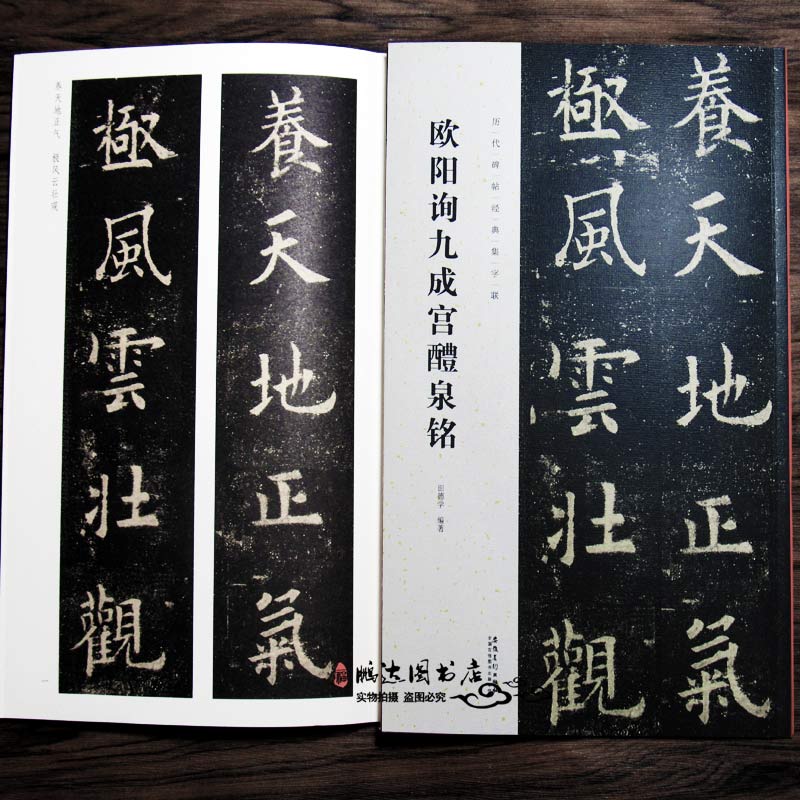 养天地正气 极风云壮观
養天地正氣
極風雲壯觀
历代碑帖经典集字联
欧阳询九成宫醴泉铭
田德学 编著
養天地正氣
極風雲壯觀
鹏达图书店
实物拍摄 盗图必究